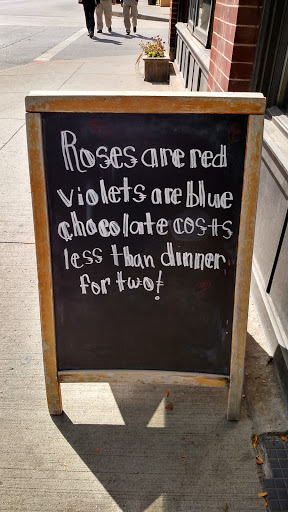 Roses are red
violets are blue
chocolate costs
less than dinner
for two!